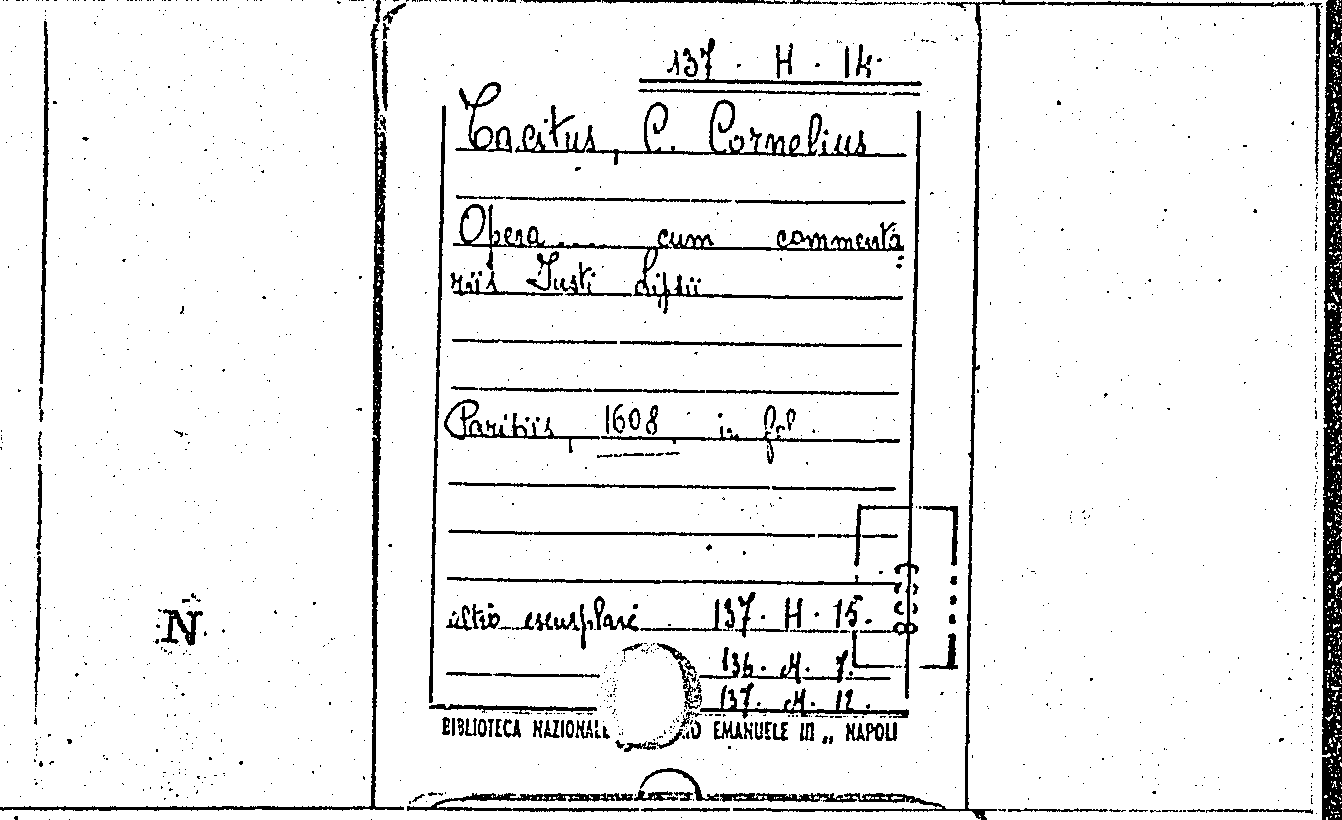 137 · H · 14·
Tacitus, C. Cornelius
Opera .... cum commenta=
riis Justi Lipsii
Parisiis, 1608 in fol.
altro esemplare 137 · H · 15.
136. M. 7.
137. M. 12.
BIBLIOTECA NAZIONALE EMANUELE III „ NAPOLI
N